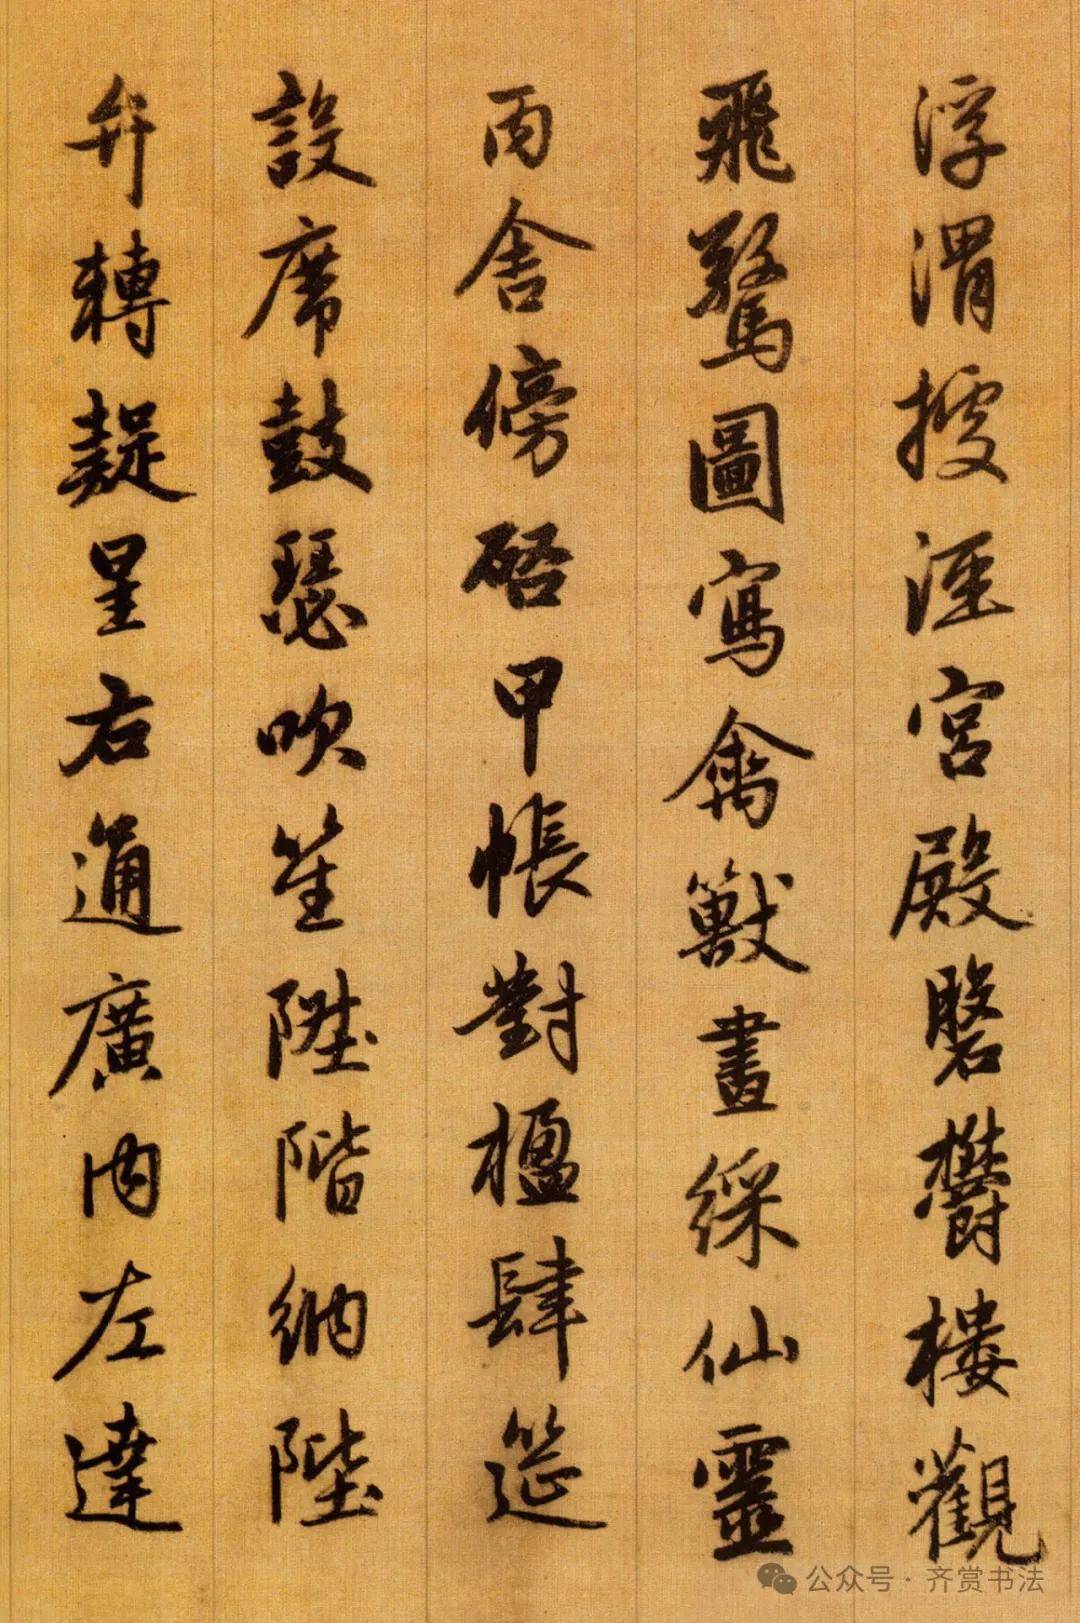 浮渭據涇宮殿磐欝樓觀
飛驚圖寫禽獸畫綵仙靈
丙舍傍啓甲帳對楹肆筵
設席鼓瑟吹笙陞階納陛
弁轉疑星右通廣內左達
公众号·齐赏书法